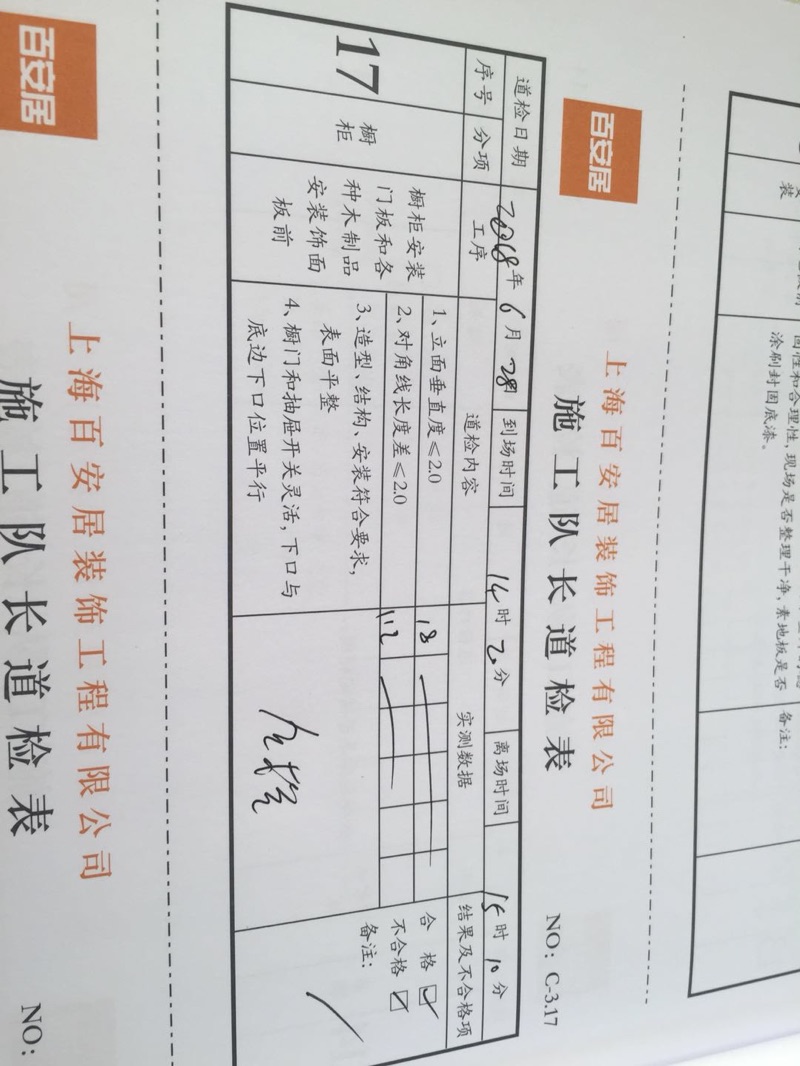 装
固性和合理性,现场是否整理干净,素地板是否
涂刷封固底漆。
备注:
百安居
上海百安居装饰工程有限公司
施工队长道检表
NO: C-3.17
道检日期 年 6 月 28 到场时间 14 时 分 离场时间 15 时 10 分
序号 分项 工序 道检内容 实测数据 结果及不合格项
17
橱柜
橱柜安装
门板和各
种木制品
安装饰面
板前
1、立面垂直度≤2.0
2、对角线长度差≤2.0
3、造型、结构、安装符合要求,
表面平整
4、橱门和抽屉开关灵活,下口与
底边下口位置平行
合格
不合格
备注:
百安居
上海百安居装饰工程有限公司
施工队长道检表
NO: